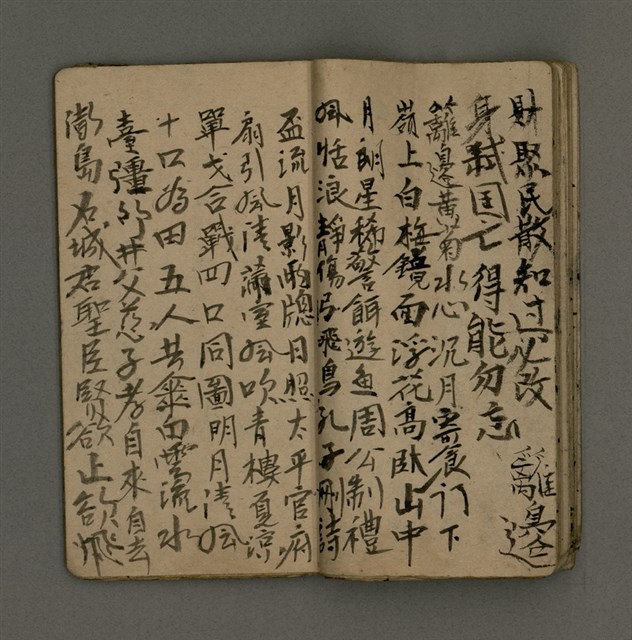 財聚民散知过必改
身弑国亡得能勿忘
籬邊
籬邊黄菊水心沉月寄食门下
嶺上白梅鏡面浮花高臥山中
月朗星稀警餌遊鱼周公制禮
風恬浪静傷弓飛鳥孔子刪詩
盃流月影兩牕月照太平官府
扇引風清滿室風吹青樓夏凉
單戈合戰四口同圖明月清風
十口为田五人共傘白雲流水
臺彊 井父慈子孝自來自去
島 城君聖臣賢欲止欲飛